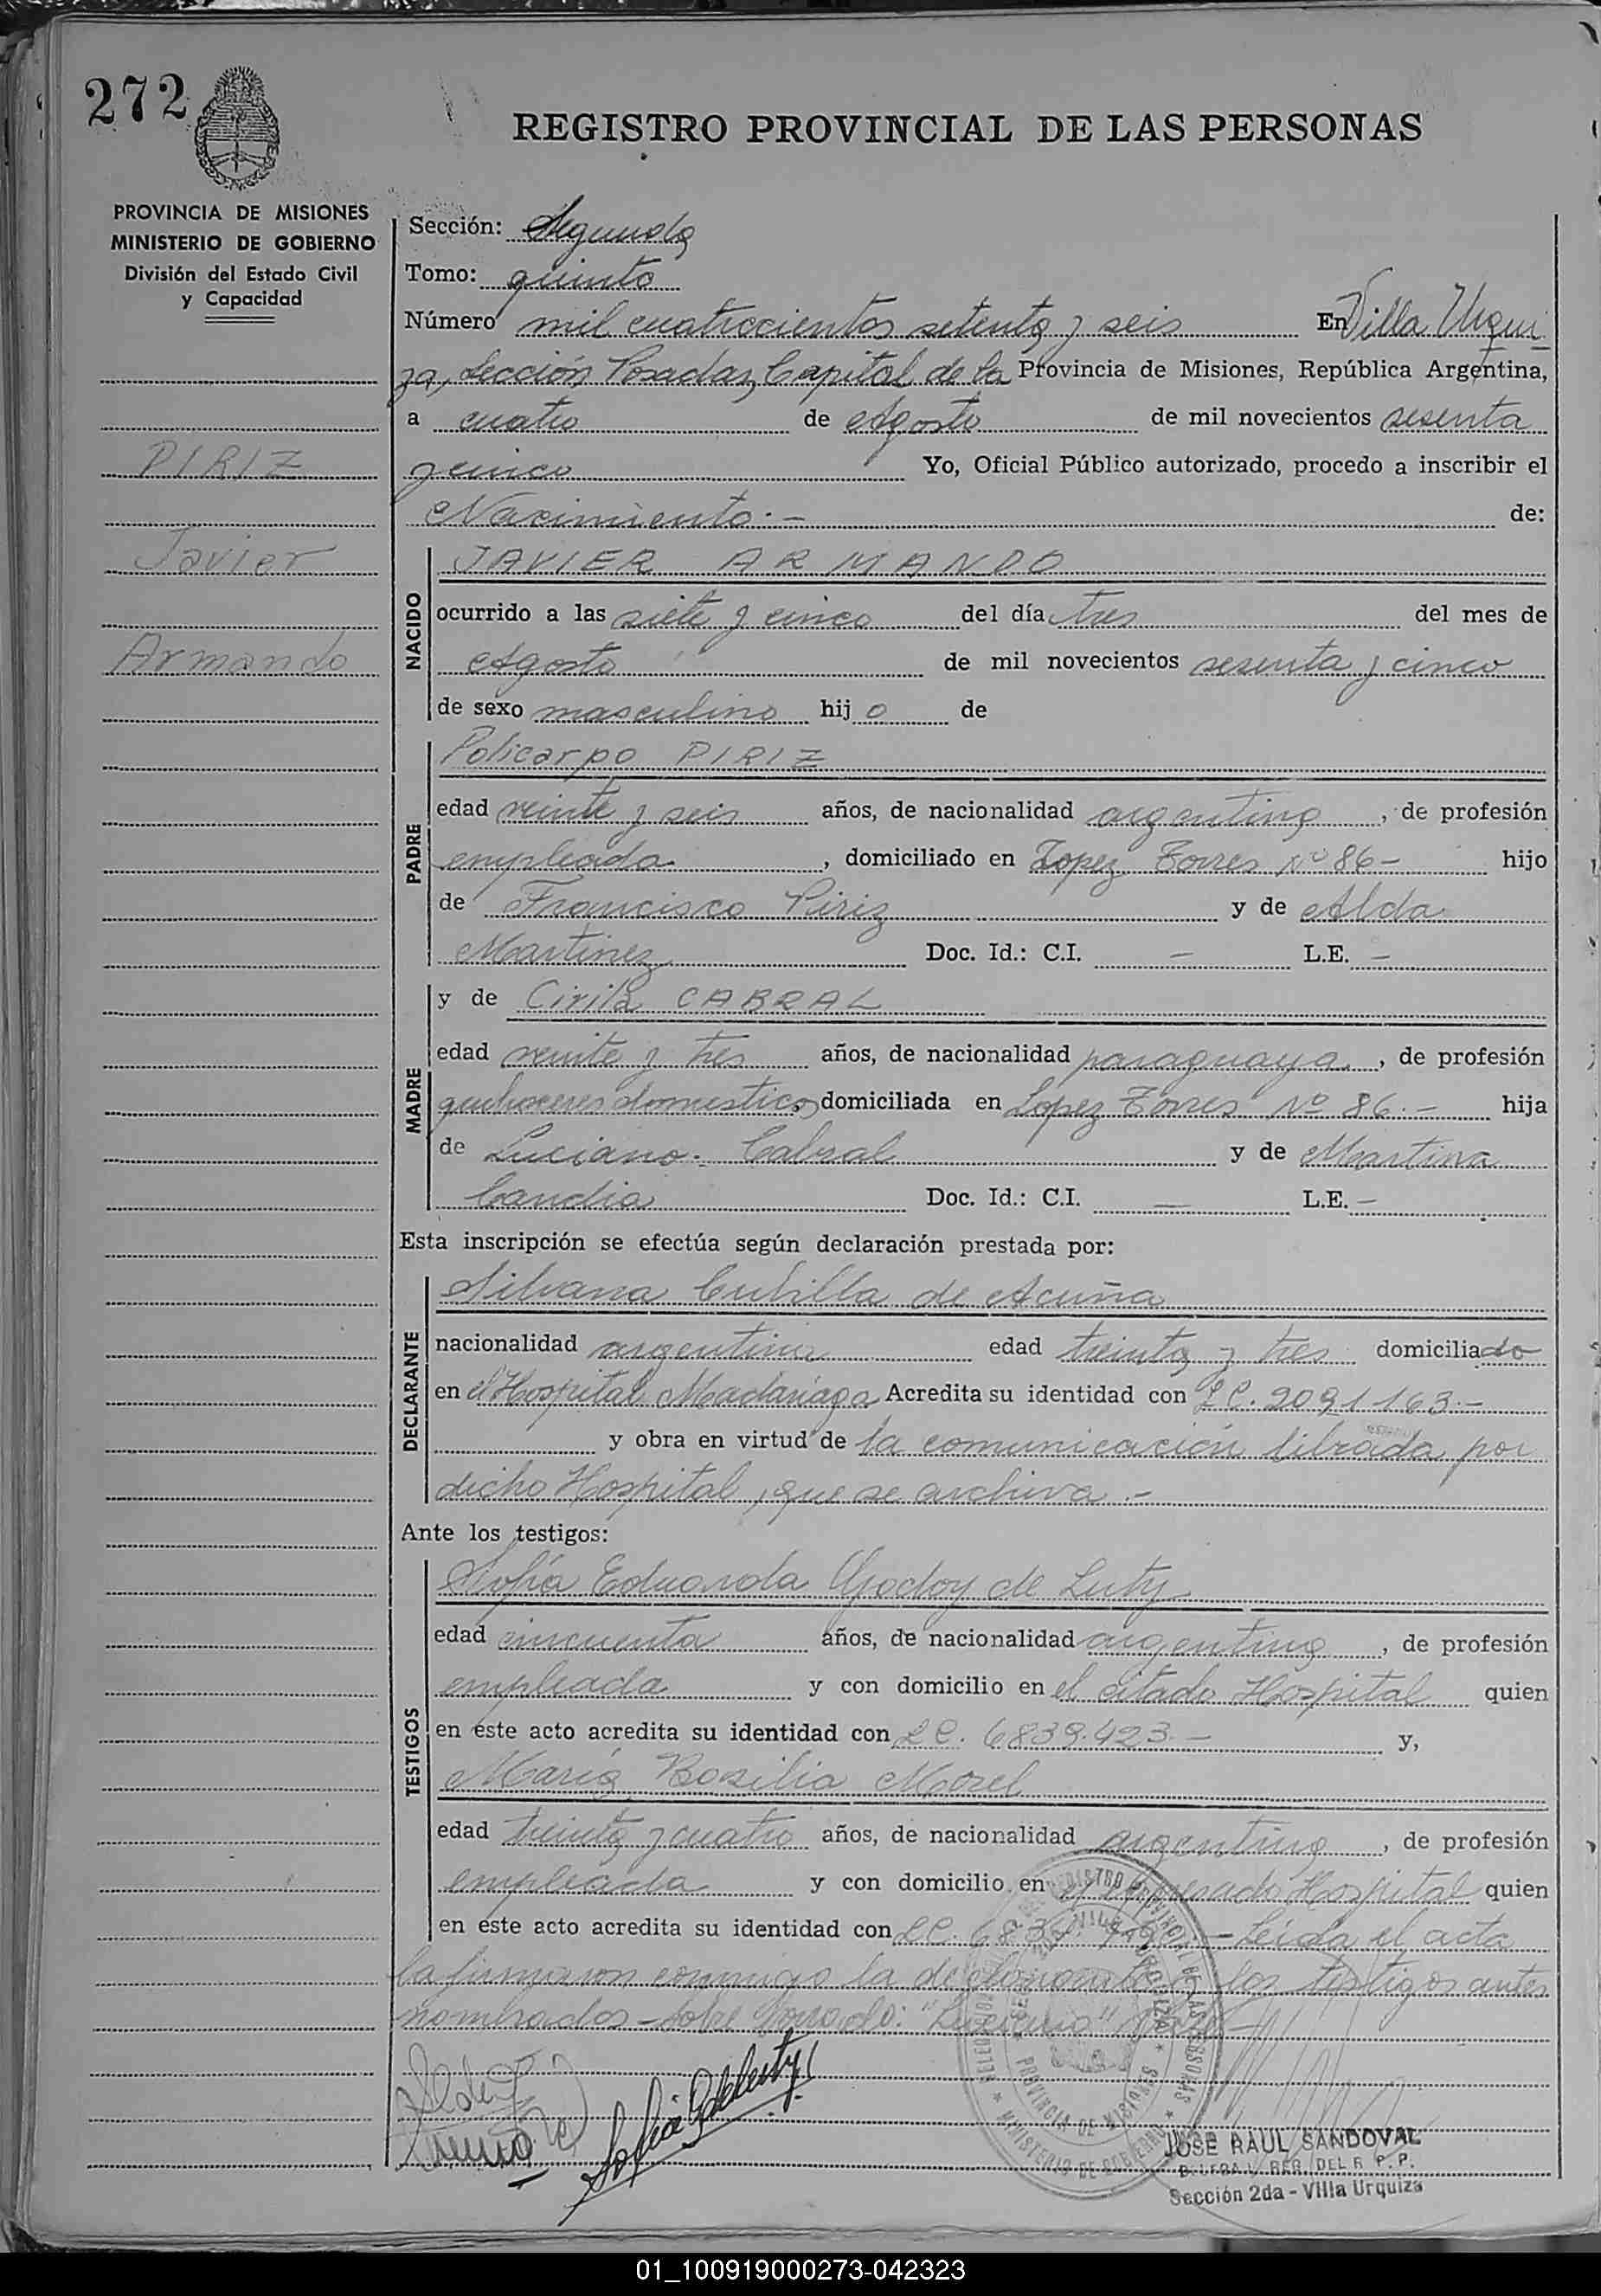 272
REGISTRO PROVINCIAL DE LAS PERSONAS
PROVINCIA DE MISIONES
MINISTERIO DE GOBIERNO
División del Estado Civil
y Capacidad
PIRIZ
Javier
Armando
Sección: Segunda
Tomo: quinto
Número mil cuatrocientos setenta y seis En Villa Urqui
za, Sección Posadas, Capital de la Provincia de Misiones, República Argentina,
a cuatro de Agosto de mil novecientos sesenta
y cinco Yo, Oficial Público autorizado, procedo a inscribir el
Nacimiento.- de:
NACIDO
JAVIER ARMANDO
ocurrido a las siete y cinco del día tres del mes de
Agosto de mil novecientos sesenta y cinco
de sexo masculino hij o de
PADRE
Policarpo PIRIZ
edad veinte y seis años, de nacionalidad argentina, de profesión
empleado, domiciliado en Lopez Torres Nº 86- hijo
de Francisco Piriz y de Alda
Martinez Doc. Id.: C.I. - L.E. -
MADRE
y de Cirila CABRAL
edad veinte y tres años, de nacionalidad paraguaya, de profesión
quehaceres domesticos domiciliada en Lopez Torres Nº 86.- hija
de Luciano Cabral y de Martina
Candia Doc. Id.: C.I. - L.E. -
Esta inscripción se efectúa según declaración prestada por:
DECLARANTE
Silvana Cubilla de Acuña
nacionalidad argentina edad treinta y tres domiciliado
en el Hospital Madariaga Acredita su identidad con L.C. 2091163.-
y obra en virtud de la comunicación librada por
dicho Hospital, que se archiva.-
Ante los testigos:
TESTIGOS
Sofía Eduarda Godoy de Luty
edad cincuenta años, de nacionalidad argentina, de profesión
empleada y con domicilio en el citado Hospital quien
en este acto acredita su identidad con L.C. 6839.423- y,
María Basilia Morel
edad treinta y cuatro años, de nacionalidad argentina, de profesión
empleada y con domicilio en Hospital quien
en este acto acredita su identidad con L.C. - Leída el acta
la firmaron conmigo la declarante y los testigos antes
nombrados - Sobre borrado: "Luciano" Vale -
REGISTRO PROVINCIAL DE LAS PERSONAS
VILLA URQUIZA
PROVINCIA DE MISIONES
MINISTERIO DE GOBIERNO
Sofía G de Luty
JOSE RAUL SANDOVAL
DEL R. P. P.
Sección 2da - Villa Urquiza
01_100919000273-042323